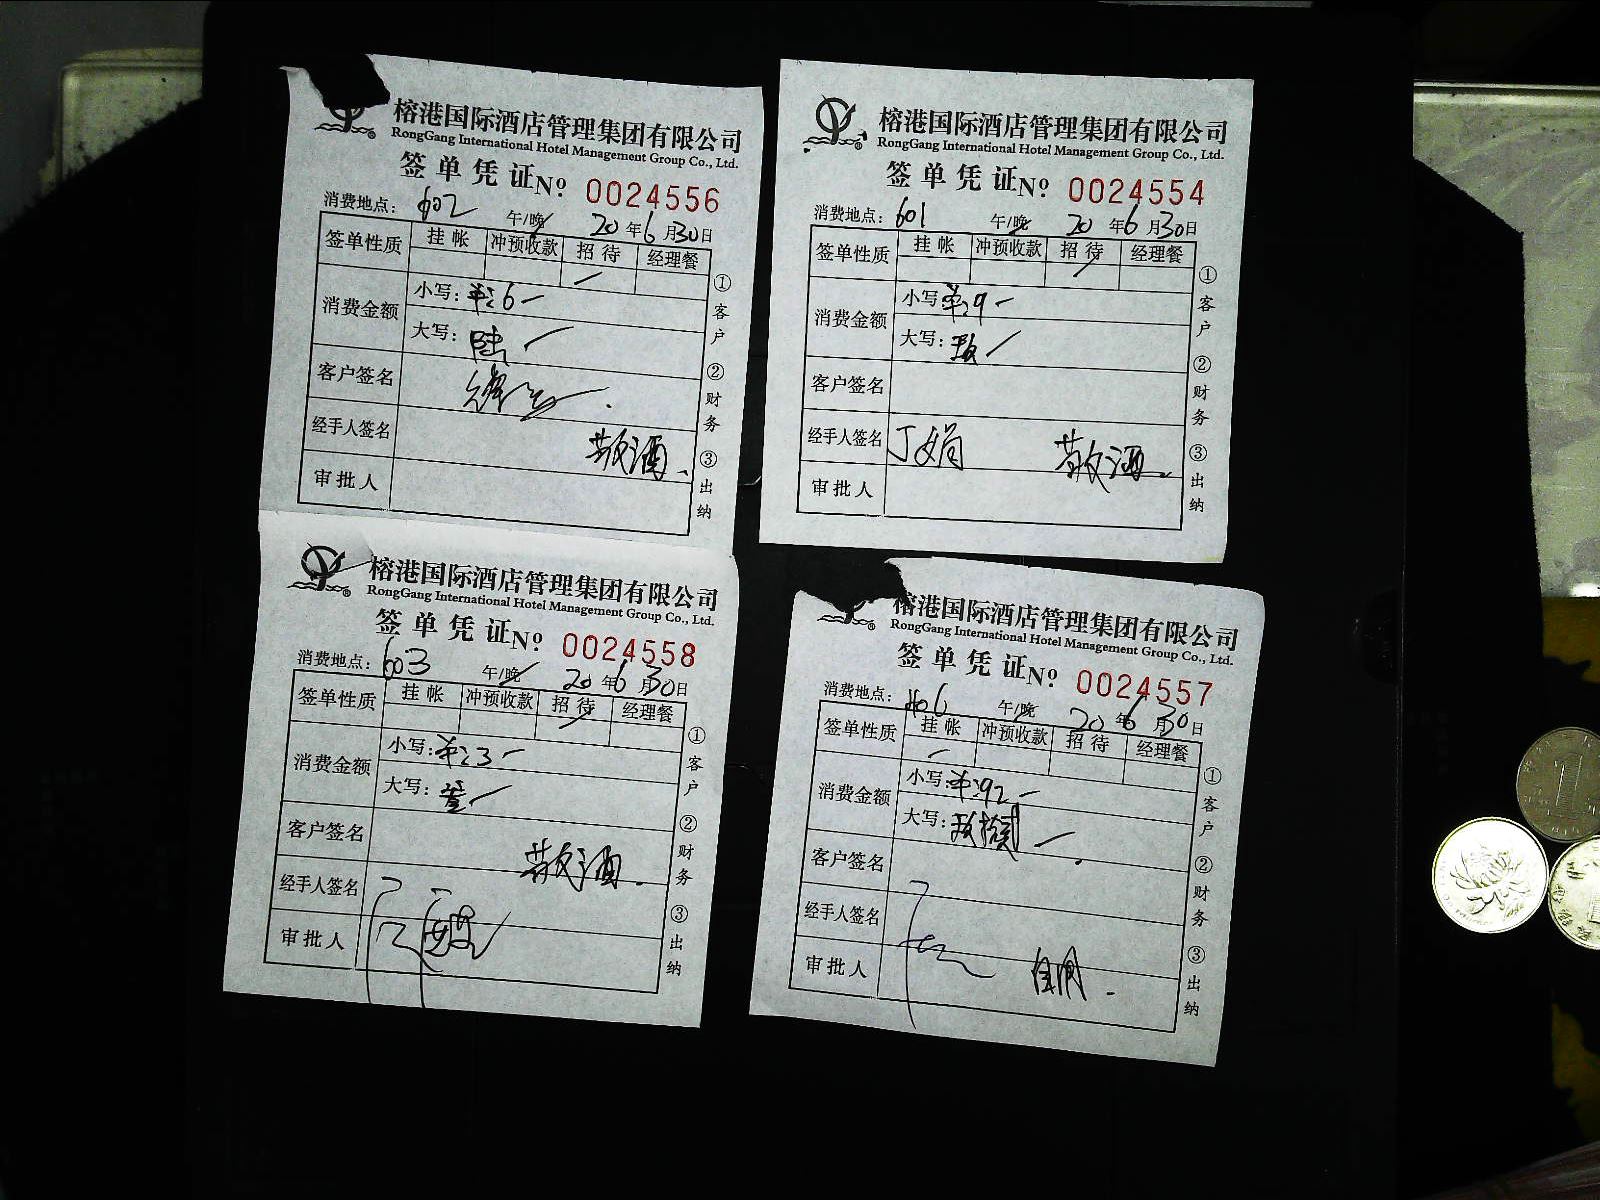 榕港国际酒店管理集团有限公司
RongGang International Hotel Management Group Co., Ltd.
签单凭证 No. 0024556
消费地点: 602 午/晚 20年6月30日
签单性质 挂帐 冲预收款 招待 经理餐
消费金额 小写: 6
大写: 陆
客户签名
经手人签名 敬酒
审批人
①客户 ②财务 ③出纳
榕港国际酒店管理集团有限公司
RongGang International Hotel Management Group Co., Ltd.
签单凭证 No. 0024554
消费地点: 601 午/晚 20年6月30日
签单性质 挂帐 冲预收款 招待 经理餐
消费金额 小写: 9
大写: 玖
客户签名
经手人签名 丁娟 敬酒
审批人
①客户 ②财务 ③出纳
榕港国际酒店管理集团有限公司
RongGang International Hotel Management Group Co., Ltd.
签单凭证 No. 0024558
消费地点: 603 午/晚 20年6月30日
签单性质 挂帐 冲预收款 招待 经理餐
消费金额 小写: 3
大写:
客户签名 敬酒
经手人签名
审批人
①客户 ②财务 ③出纳
榕港国际酒店管理集团有限公司
RongGang International Hotel Management Group Co., Ltd.
签单凭证 No. 0024557
消费地点: 午/晚 20年6月30日
签单性质 挂帐 冲预收款 招待 经理餐
消费金额 小写: 92
大写: 玖拾贰
客户签名
经手人签名
审批人 自用
①客户 ②财务 ③出纳